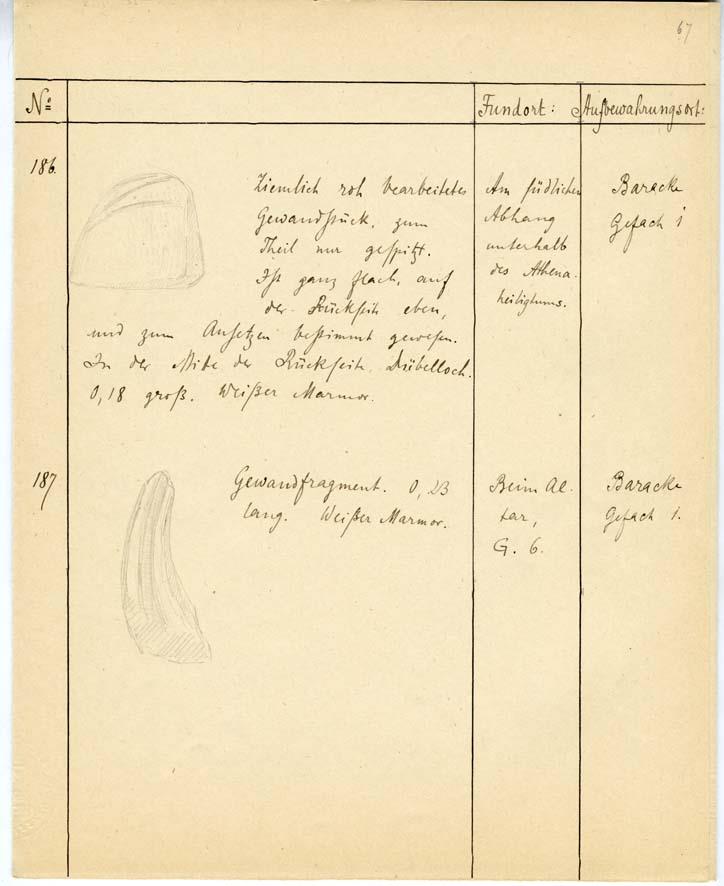 67
No Fundort: Aufbewahrungsort:
186.
Ziemlich roh bearbeitetes
Gewandstück, zum
Theil nur gespitzt.
Ist ganz flach, auf
der Rückseite eben,
und zum Ansetzen bestimmt gewesen.
In der Mitte der Rückseite Dübelloch.
0,18 groß. Weißer Marmor.
Am südlichen
Abhang
unterhalb
des Athena-
heiligtums.
Baracke
Gefach 1
187
Gewandfragment. 0,23
lang. Weißer Marmor.
Beim Al-
tar,
G. 6.
Baracke
Gefach 1.